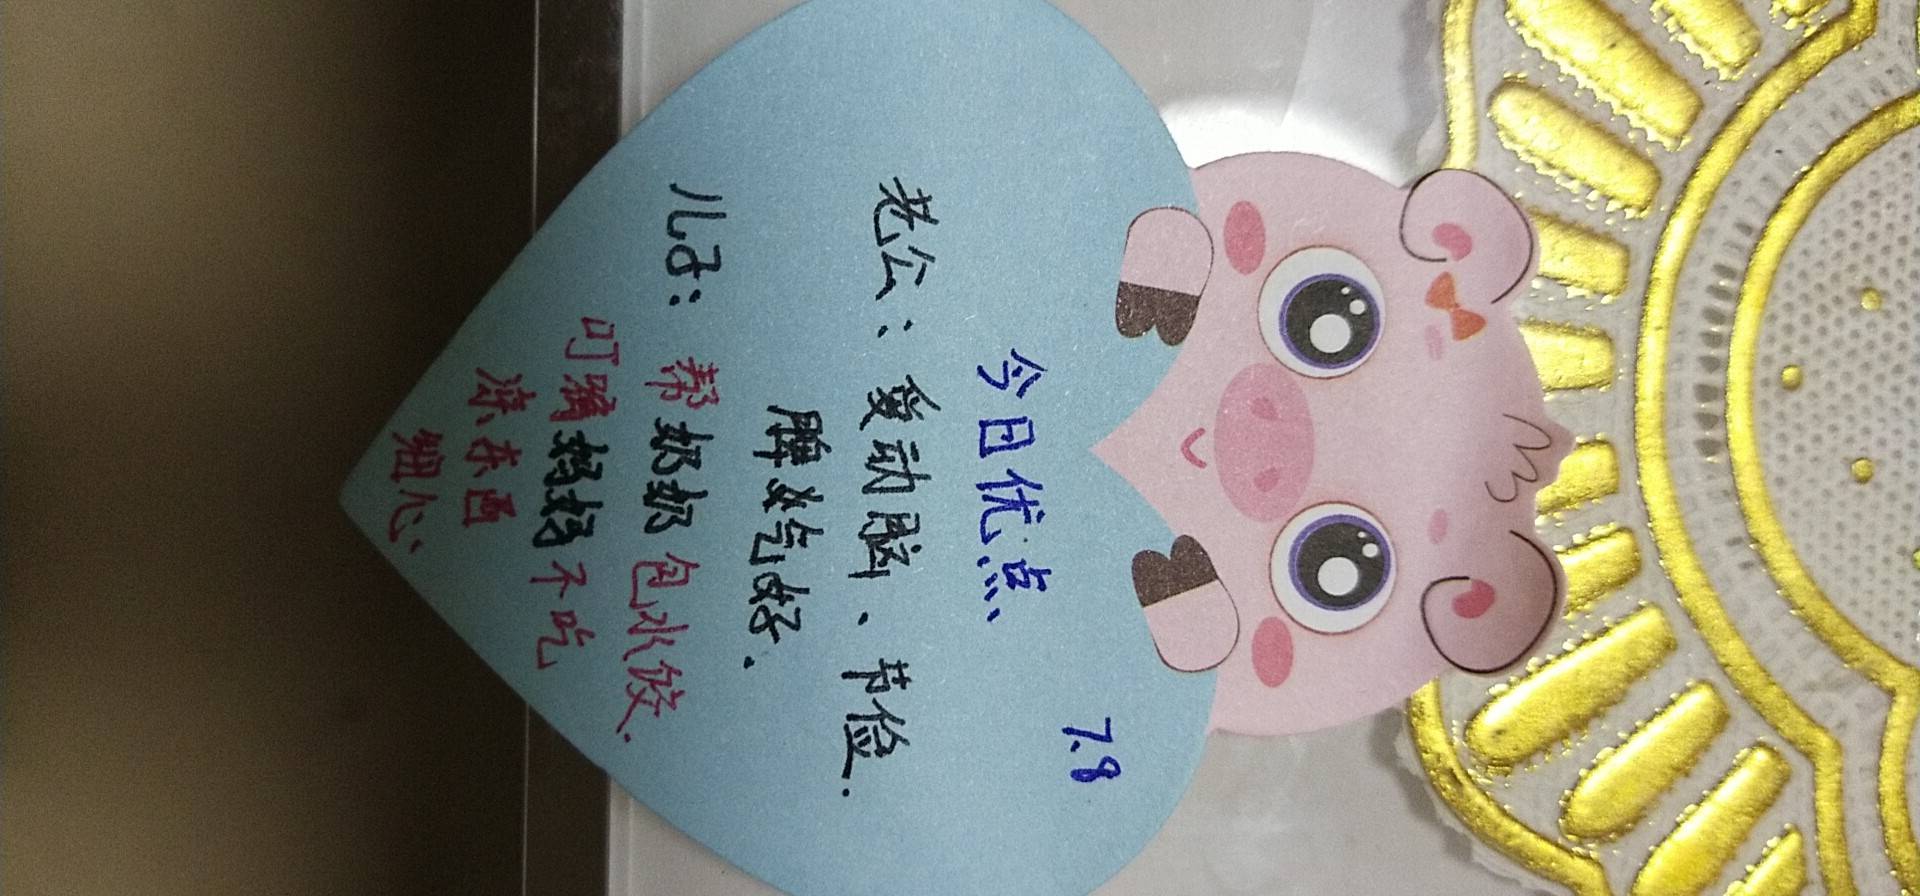 7.8
今日优点
老公：爱动脑、节俭.
脾气好.
儿子：帮奶奶包水饺.
叮嘱妈妈不吃
凉东西
细心、